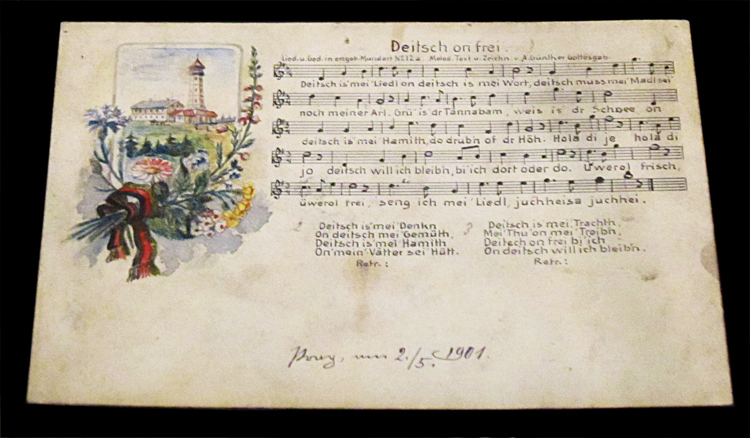 Deitsch on frei.
Lied. u. Ged. in erzgeb. Mundart № 12 a. Melod. Text u. Zeichn. v. A. Günther Gottesgab.
Deitsch is' mei' Liedl on deitsch is mei Wort, deitsch muss mei' Madl sei
noch meiner Art. Grü' is dr Tannabam, weis is dr Schnee on
deitsch is mei Hamith, do drubn of dr Höh. Hola di je hola di
jo deitsch will ich bleibn, bi ich dort oder do. Üwerol frisch,
üwerol frei, seng ich mei' Liedl, juchheisa juchhei.
2 Deitsch is' mei' Denkn
On deitsch mei' Gemüth,
Deitsch is' mei' Hamith
On' mein' Vatter sei Hütt.
Refr.:
3 Deitsch is mei Trachth
Mei' Thu' on mei' Treibn,
Deitsch on frei bi ich
On deitsch will ich bleib'n.
Refr.:
2./5. 1901.